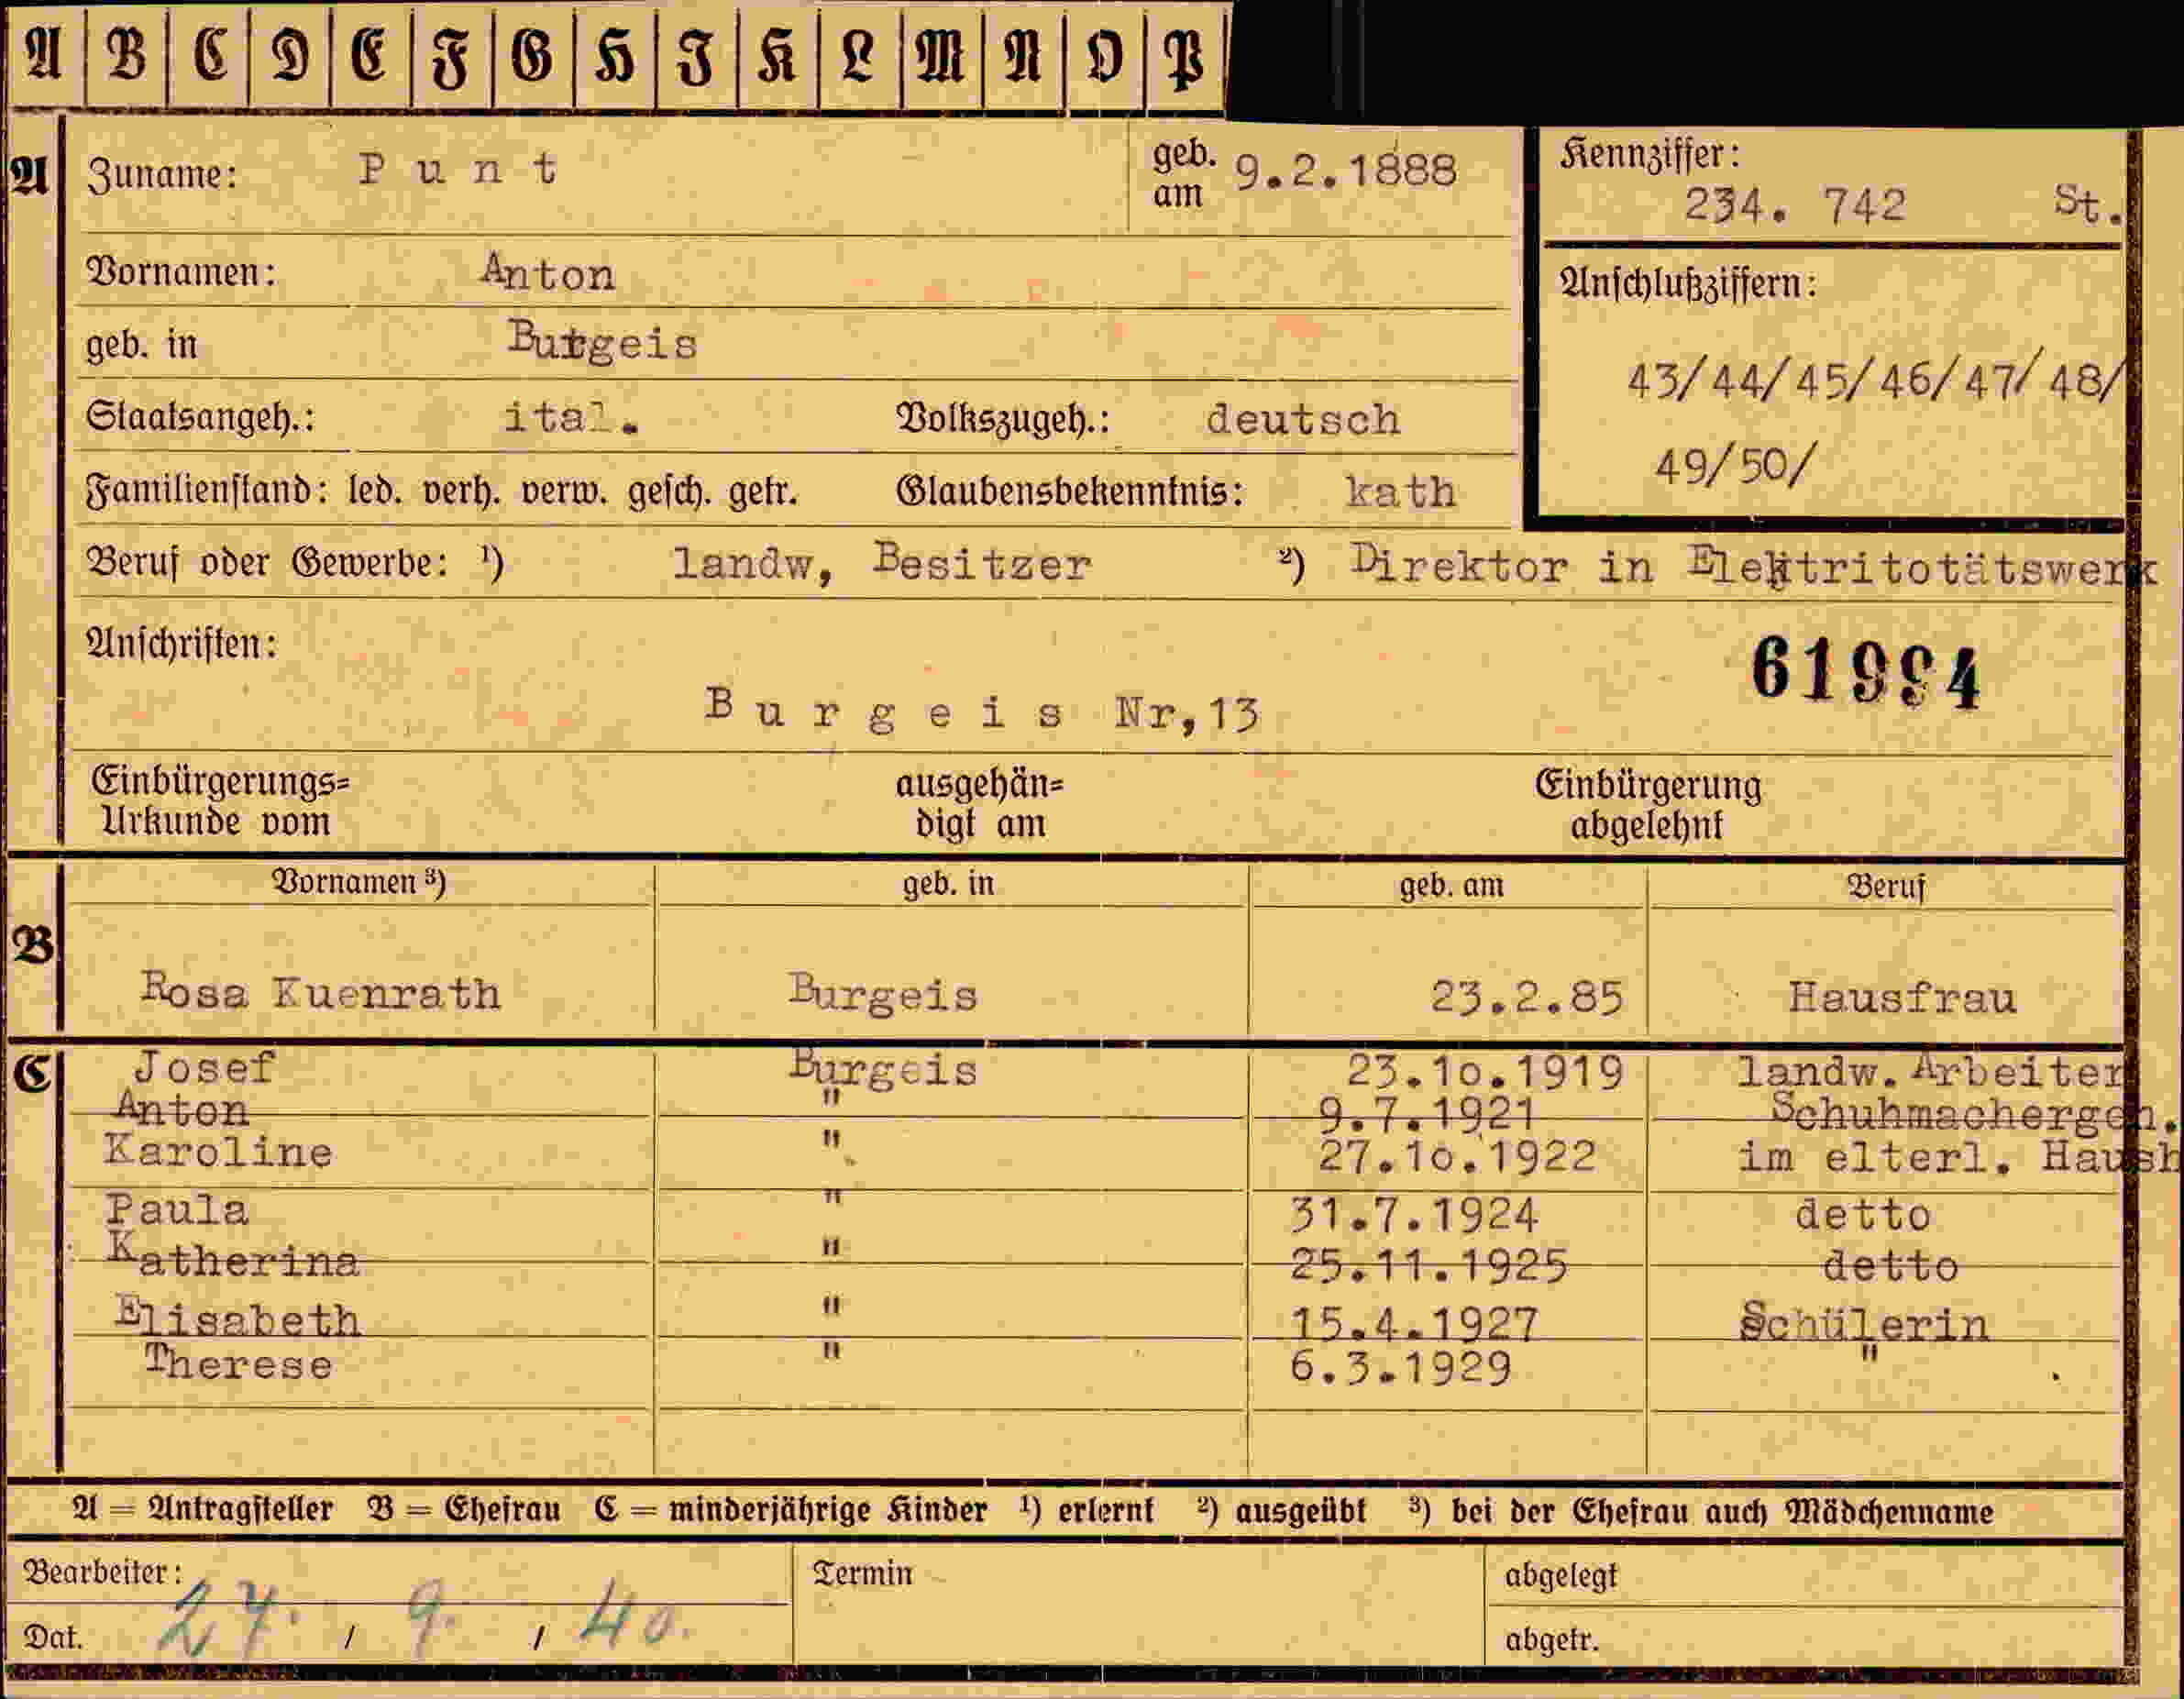 A B C D E F G H I K L M N O P
A Zuname: Punt geb. am 9.2.1888 Kennziffer:
234. 742 St.
Vornamen: Anton Anschlußziffern:
geb. in Burgeis
43/44/45/46/47/48/
Staatsangeh.: ital. Volkszugeh.: deutsch
49/50/
Familienstand: led. verh. verw. gesch. getr. Glaubensbekenntnis: kath
Beruf oder Gewerbe: ¹) landw, Besitzer ²) Direktor in Elektritotätswerk
Anschriften: 61994
Burgeis Nr,13
Einbürgerungs= ausgehän= Einbürgerung
Urkunde vom digt am abgelehnt
Vornamen ³) geb. in geb. am Beruf
B
Rosa Kuenrath Burgeis 23.2.85 Hausfrau
C Josef Burgeis 23.10.1919 landw. Arbeiter
Anton " 9.7.1921 Schuhmachergeh.
Karoline " 27.10.1922 im elterl. Haush
Paula " 31.7.1924 detto
Katherina " 25.11.1925 detto
Elisabeth " 15.4.1927 Schülerin
Therese " 6.3.1929 "
A = Antragsteller B = Ehefrau C = minderjährige Kinder ¹) erlernt ²) ausgeübt ³) bei der Ehefrau auch Mädchenname
Bearbeiter: Termin abgelegt
Dat. 27. / 9. / 40. abgetr.